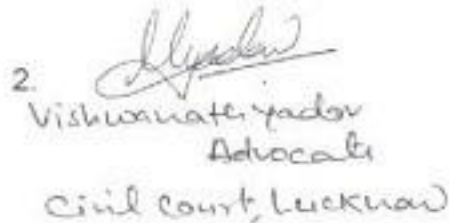 2.
Vishwanath yadav
Advocate
Civil Court, Lucknow